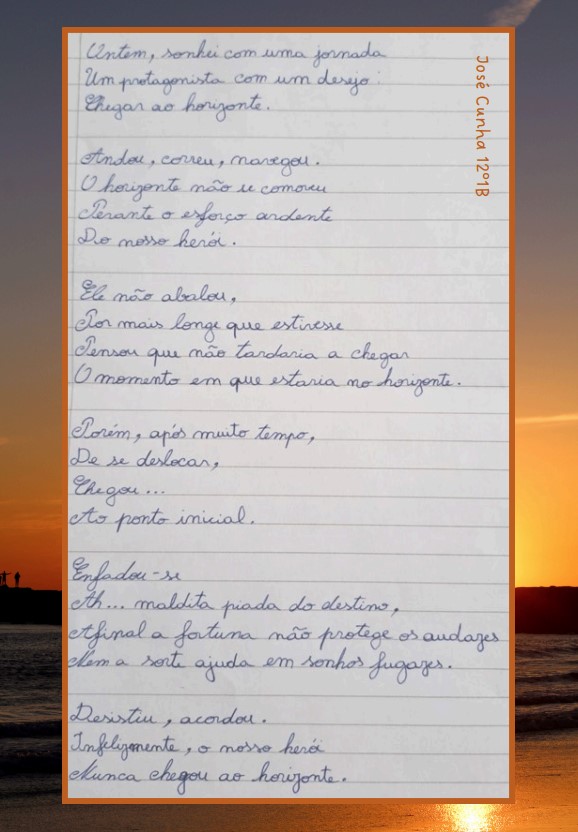 Ontem, sonhei com uma jornada
Um protagonista com um desejo:
Chegar ao horizonte.
Andou, correu, navegou.
O horizonte não se comoveu
Perante o esforço ardente
Do nosso herói.
Ele não abalou,
Por mais longe que estivesse
Pensou que não tardaria a chegar
O momento em que estaria no horizonte.
Porém, após muito tempo,
De se deslocar,
Chegou...
Ao ponto inicial.
Enfadou-se
Ah... maldita piada do destino,
Afinal a fortuna não protege os audazes
Nem a sorte ajuda em sonhos fugazes.
Desistiu, acordou.
Infelizmente, o nosso herói
Nunca chegou ao horizonte.
José Cunha 12º1B